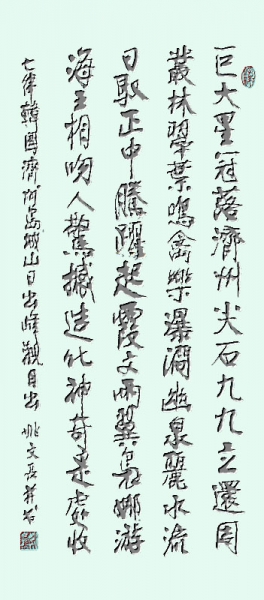 巨大皇冠落濟州尖石九九立還周
叢林翠葉鳴禽樂瀑澗幽泉麗水流
日馭正中騰躍起霞文兩翼裊娜游
海天相吻人驚撼造化神奇盡處收
七律韓國濟州島城山日出峰觀日出 姚文長并書